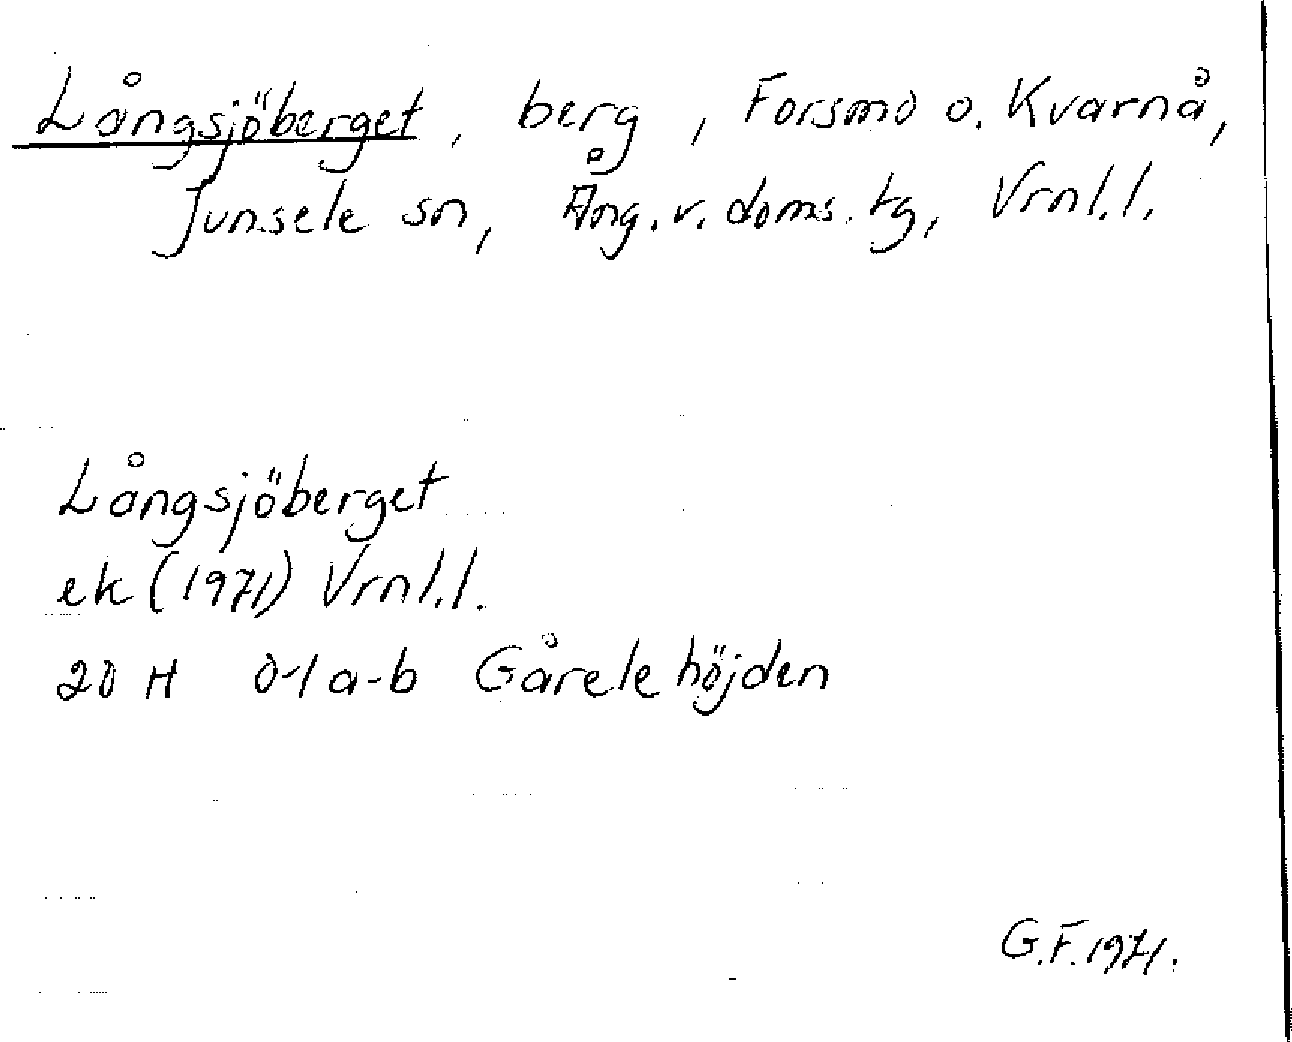 Långsjöberget, berg, Forsmo o. Kvarnå,
Junsele sn, Ång. v. doms. tg, Vrnl.l.
Långsjöberget
ek (1971) Vrnl.l.
20 H 0-1 a-b Gårelehöjden
G.F. 1971.